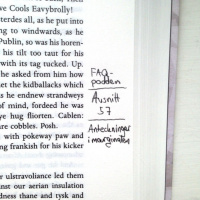 ve Cools Eavybrolly!
sterdes all, as he put into
ng to windwards, as he
Publin, so was his horen-
his tilt too taut for his
with its tag tucked. Up.
he asked from him how
et the kidballacks which
as he endnew strandweys
of mind, fordeed he was
ye hug fliorten. Cablen:
are cobbles. Posh.
with pokeway paw and
ng frankish for his kicker
r ulstravoliance led them
nst our aerian insulation
dness thane and tysk and
FAQ-
podden
Avsnitt
57
Anteckningar
i marginalen